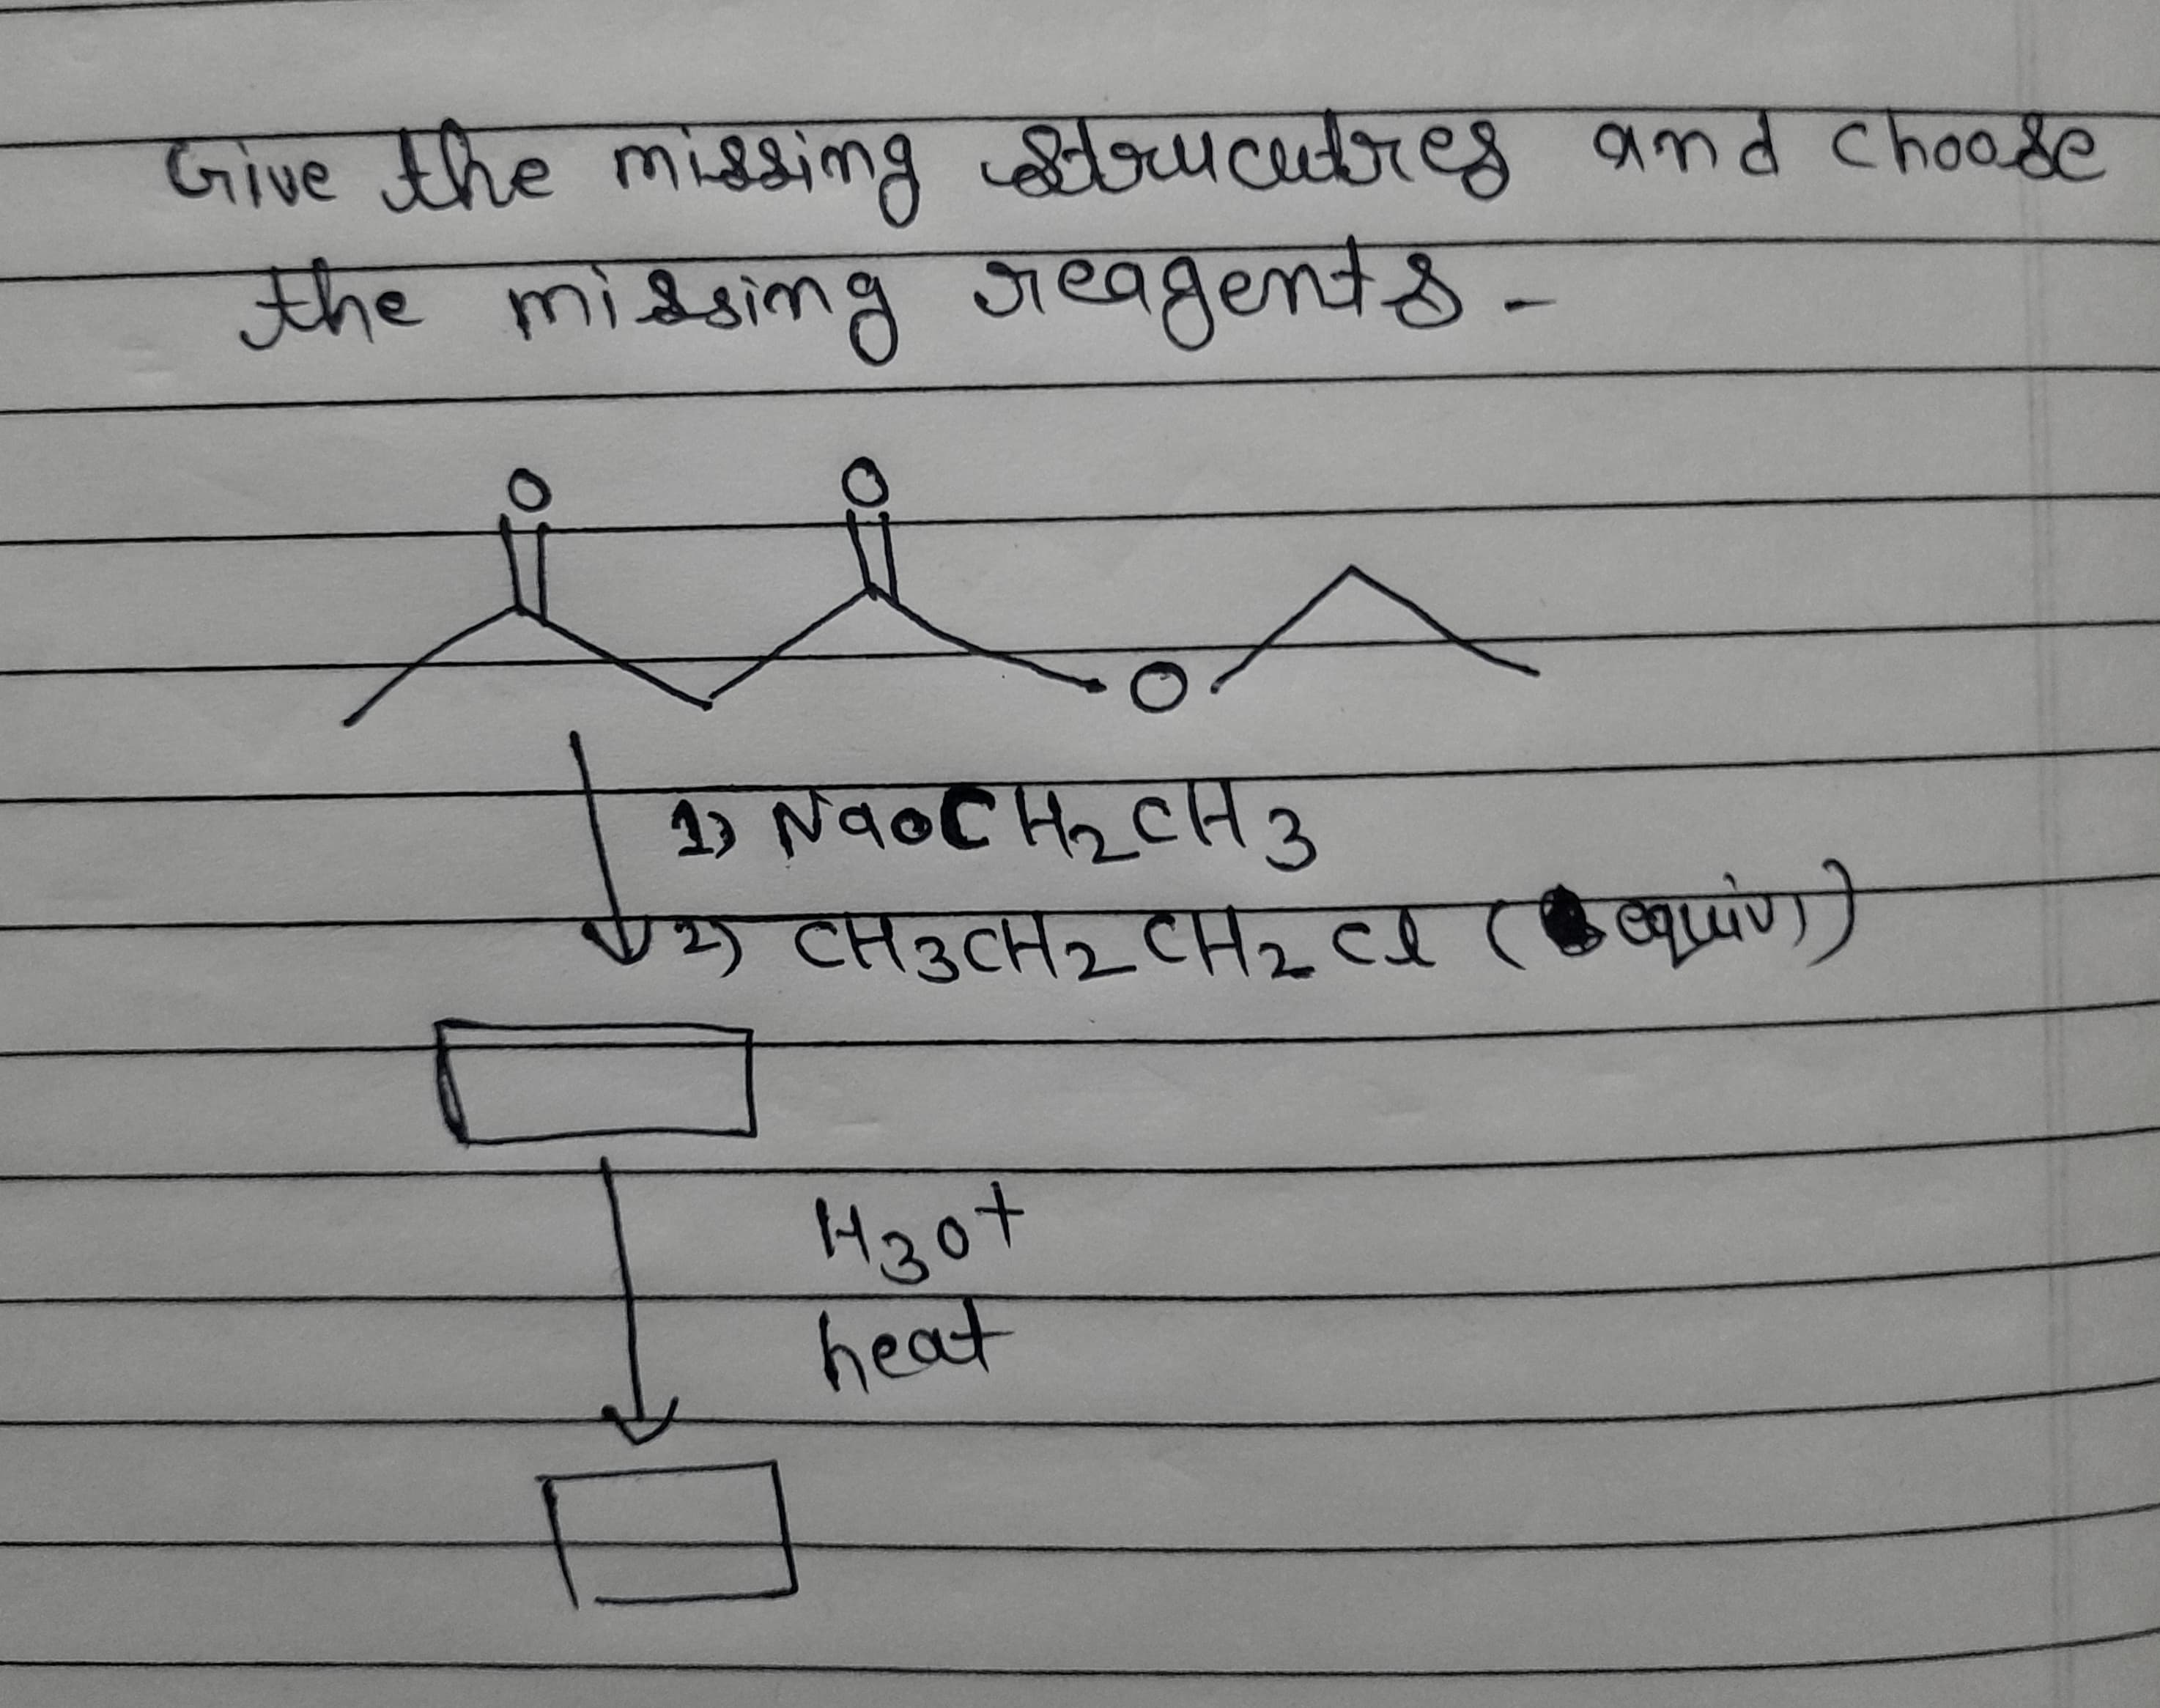 Give the missing strucutres and choose
the missing reagents -
O O
O
1) NaOCH2CH3
2) CH3CH2CH2Cl ( equiv))
H3O+
heat